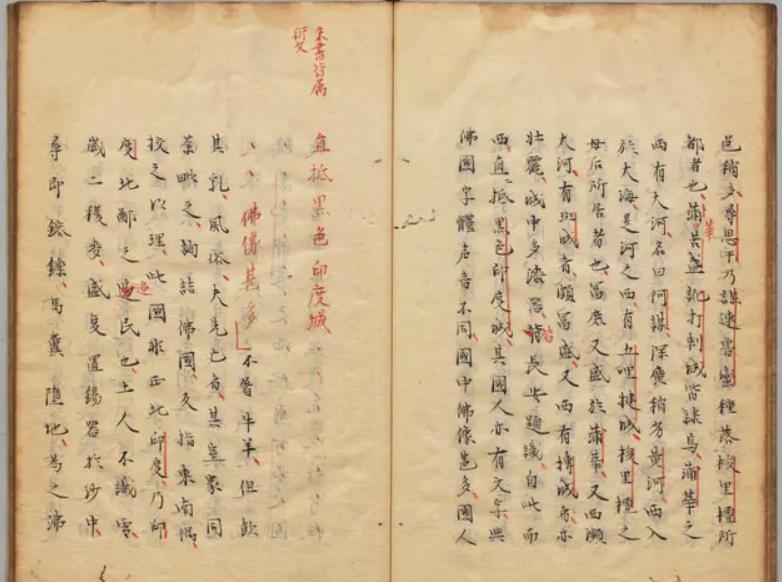 邑稍多尋思干乃謀速魯蠻種落梭里檀所
都者也、蒲苦盞訛打剌城皆隸焉、蒲華之
華
西有大河、名曰阿謀深廣稍劣黃河、西入
於大海是河之西、有五哩揵城、梭里檀之
母后所居者也、富庶又盛於蒲華、又西瀕
大河、有班城者、頗富盛、又西有摶城者、亦
壯麗、城中多漆器皆長安題識、自此而
皆
西、直抵黑色印度城、其國人亦有文字與
佛國字體声音不同、國中佛像甚多、國人
朱書皆屬
衍文
直抵黑色印度城
、、佛像甚多不屠牛羊、但飲
其乳、風俗、夫先亡者、其室家同
荼毗之、詢諸佛國、反指東南隅、
校之以理、此國非正北印度、乃印
度北鄙之邊民也、土人不識雪、
歲二穫麥、盛夏置錫器於沙中、
尋即鎔鑠、馬糞墮地、為之沸